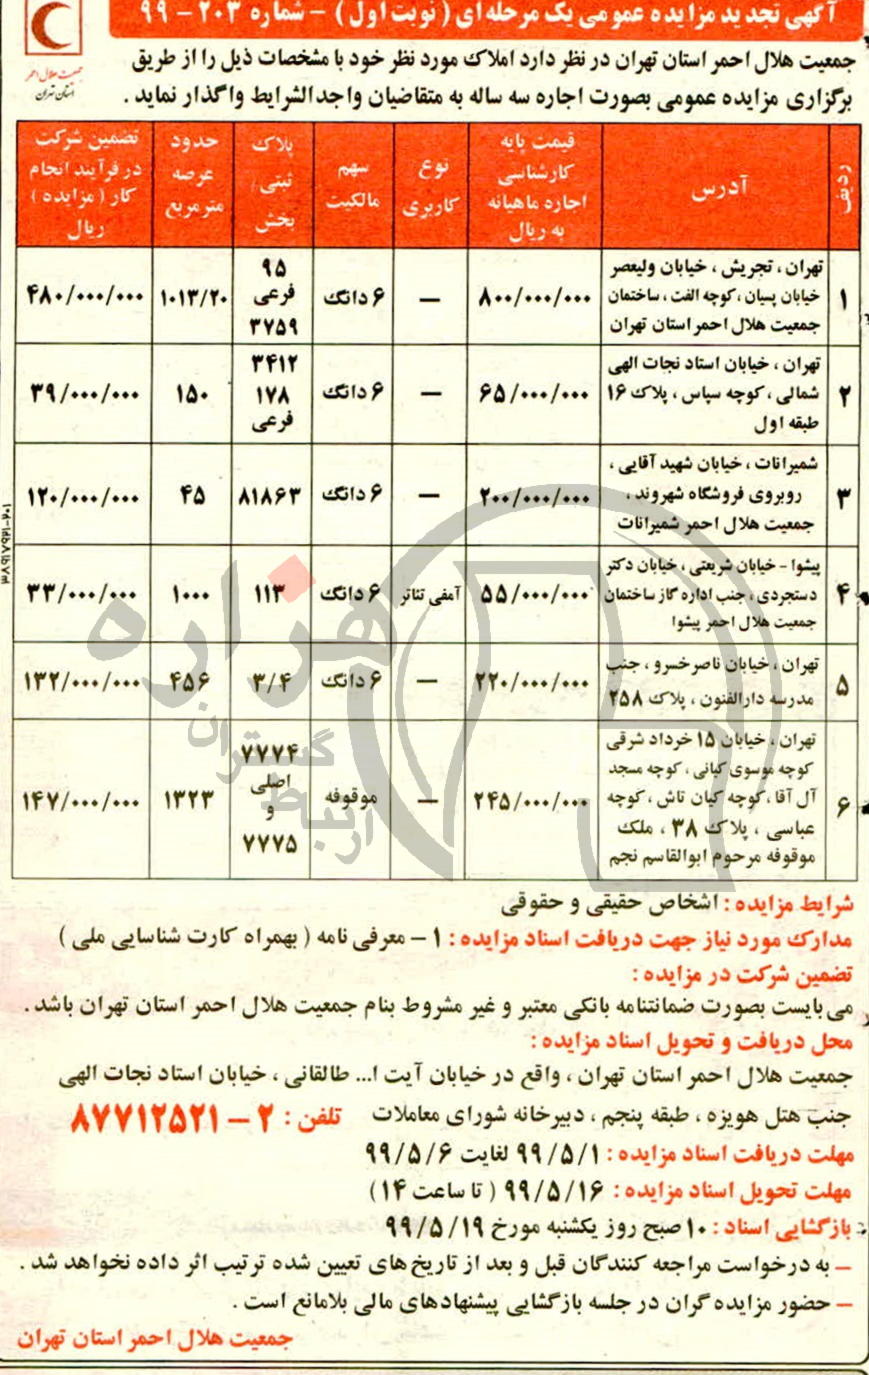 آگهی تجدید مزایده عمومی یک مرحله ای ( نوبت اول ) - شماره ۲۰۳ - ۹۹
جمعیت هلال احمر
استان تهران
جمعیت هلال احمر استان تهران در نظر دارد املاک مورد نظر خود با مشخصات ذیل را از طریق
برگزاری مزایده عمومی بصورت اجاره سه ساله به متقاضیان واجد الشرایط واگذار نماید .
ردیف
آدرس
قیمت پایه
کارشناسی
اجاره ماهیانه
به ریال
نوع
کاربری
سهم
مالکیت
پلاک
ثبتی/
بخش
حدود
عرصه
مترمربع
تضمین شرکت
در فرآیند انجام
کار ( مزایده )
ریال
۱
تهران ، تجریش ، خیابان ولیعصر
خیابان پسیان ، کوچه الفت ، ساختمان
جمعیت هلال احمر استان تهران
۸۰۰/۰۰۰/۰۰۰
—
۶ دانگ
۹۵
فرعی
۳۷۵۹
۱۰۱۳/۲۰
۴۸۰/۰۰۰/۰۰۰
۲
تهران ، خیابان استاد نجات الهی
شمالی ، کوچه سپاس ، پلاک ۱۶
طبقه اول
۶۵/۰۰۰/۰۰۰
—
۶ دانگ
۳۴۱۲
۱۷۸
فرعی
۱۵۰
۳۹/۰۰۰/۰۰۰
۳
شمیرانات ، خیابان شهید آقایی ،
روبروی فروشگاه شهروند ،
جمعیت هلال احمر شمیرانات
۲۰۰/۰۰۰/۰۰۰
—
۶ دانگ
۸۱۸۶۳
۴۵
۱۲۰/۰۰۰/۰۰۰
۴
پیشوا - خیابان شریعتی ، خیابان دکتر
دستجردی ، جنب اداره گاز ساختمان
جمعیت هلال احمر پیشوا
۵۵/۰۰۰/۰۰۰
آمفی تئاتر
۶ دانگ
۱۱۳
۱۰۰۰
۳۳/۰۰۰/۰۰۰
۵
تهران ، خیابان ناصرخسرو ، جنب
مدرسه دارالفنون ، پلاک ۲۵۸
۲۲۰/۰۰۰/۰۰۰
—
۶ دانگ
۳/۴
۴۵۶
۱۳۲/۰۰۰/۰۰۰
۶
تهران ، خیابان ۱۵ خرداد شرقی
کوچه موسوی کیانی ، کوچه مسجد
آل آقا ، کوچه کیان تاش ، کوچه
عباسی ، پلاک ۳۸ ، ملک
موقوفه مرحوم ابوالقاسم نجم
۲۴۵/۰۰۰/۰۰۰
—
موقوفه
۷۷۷۴
اصلی
و
۷۷۷۵
۱۳۲۳
۱۴۷/۰۰۰/۰۰۰
هزاره
گستران
ارتباط
شرایط مزایده : اشخاص حقیقی و حقوقی
مدارک مورد نیاز جهت دریافت اسناد مزایده : ۱ - معرفی نامه ( بهمراه کارت شناسایی ملی )
تضمین شرکت در مزایده :
می بایست بصورت ضمانتنامه بانکی معتبر و غیر مشروط بنام جمعیت هلال احمر استان تهران باشد .
محل دریافت و تحویل اسناد مزایده :
جمعیت هلال احمر استان تهران ، واقع در خیابان آیت ا... طالقانی ، خیابان استاد نجات الهی
جنب هتل هویزه ، طبقه پنجم ، دبیرخانه شورای معاملات تلفن : ۲ - ۸۷۷۱۲۵۲۱
مهلت دریافت اسناد مزایده : ۹۹/۵/۱ لغایت ۹۹/۵/۶
مهلت تحویل اسناد مزایده : ۹۹/۵/۱۶ ( تا ساعت ۱۴ )
بازگشایی اسناد : ۱۰ صبح روز یکشنبه مورخ ۹۹/۵/۱۹
- به درخواست مراجعه کنندگان قبل و بعد از تاریخ های تعیین شده ترتیب اثر داده نخواهد شد .
- حضور مزایده گران در جلسه بازگشایی پیشنهادهای مالی بلامانع است .
جمعیت هلال احمر استان تهران